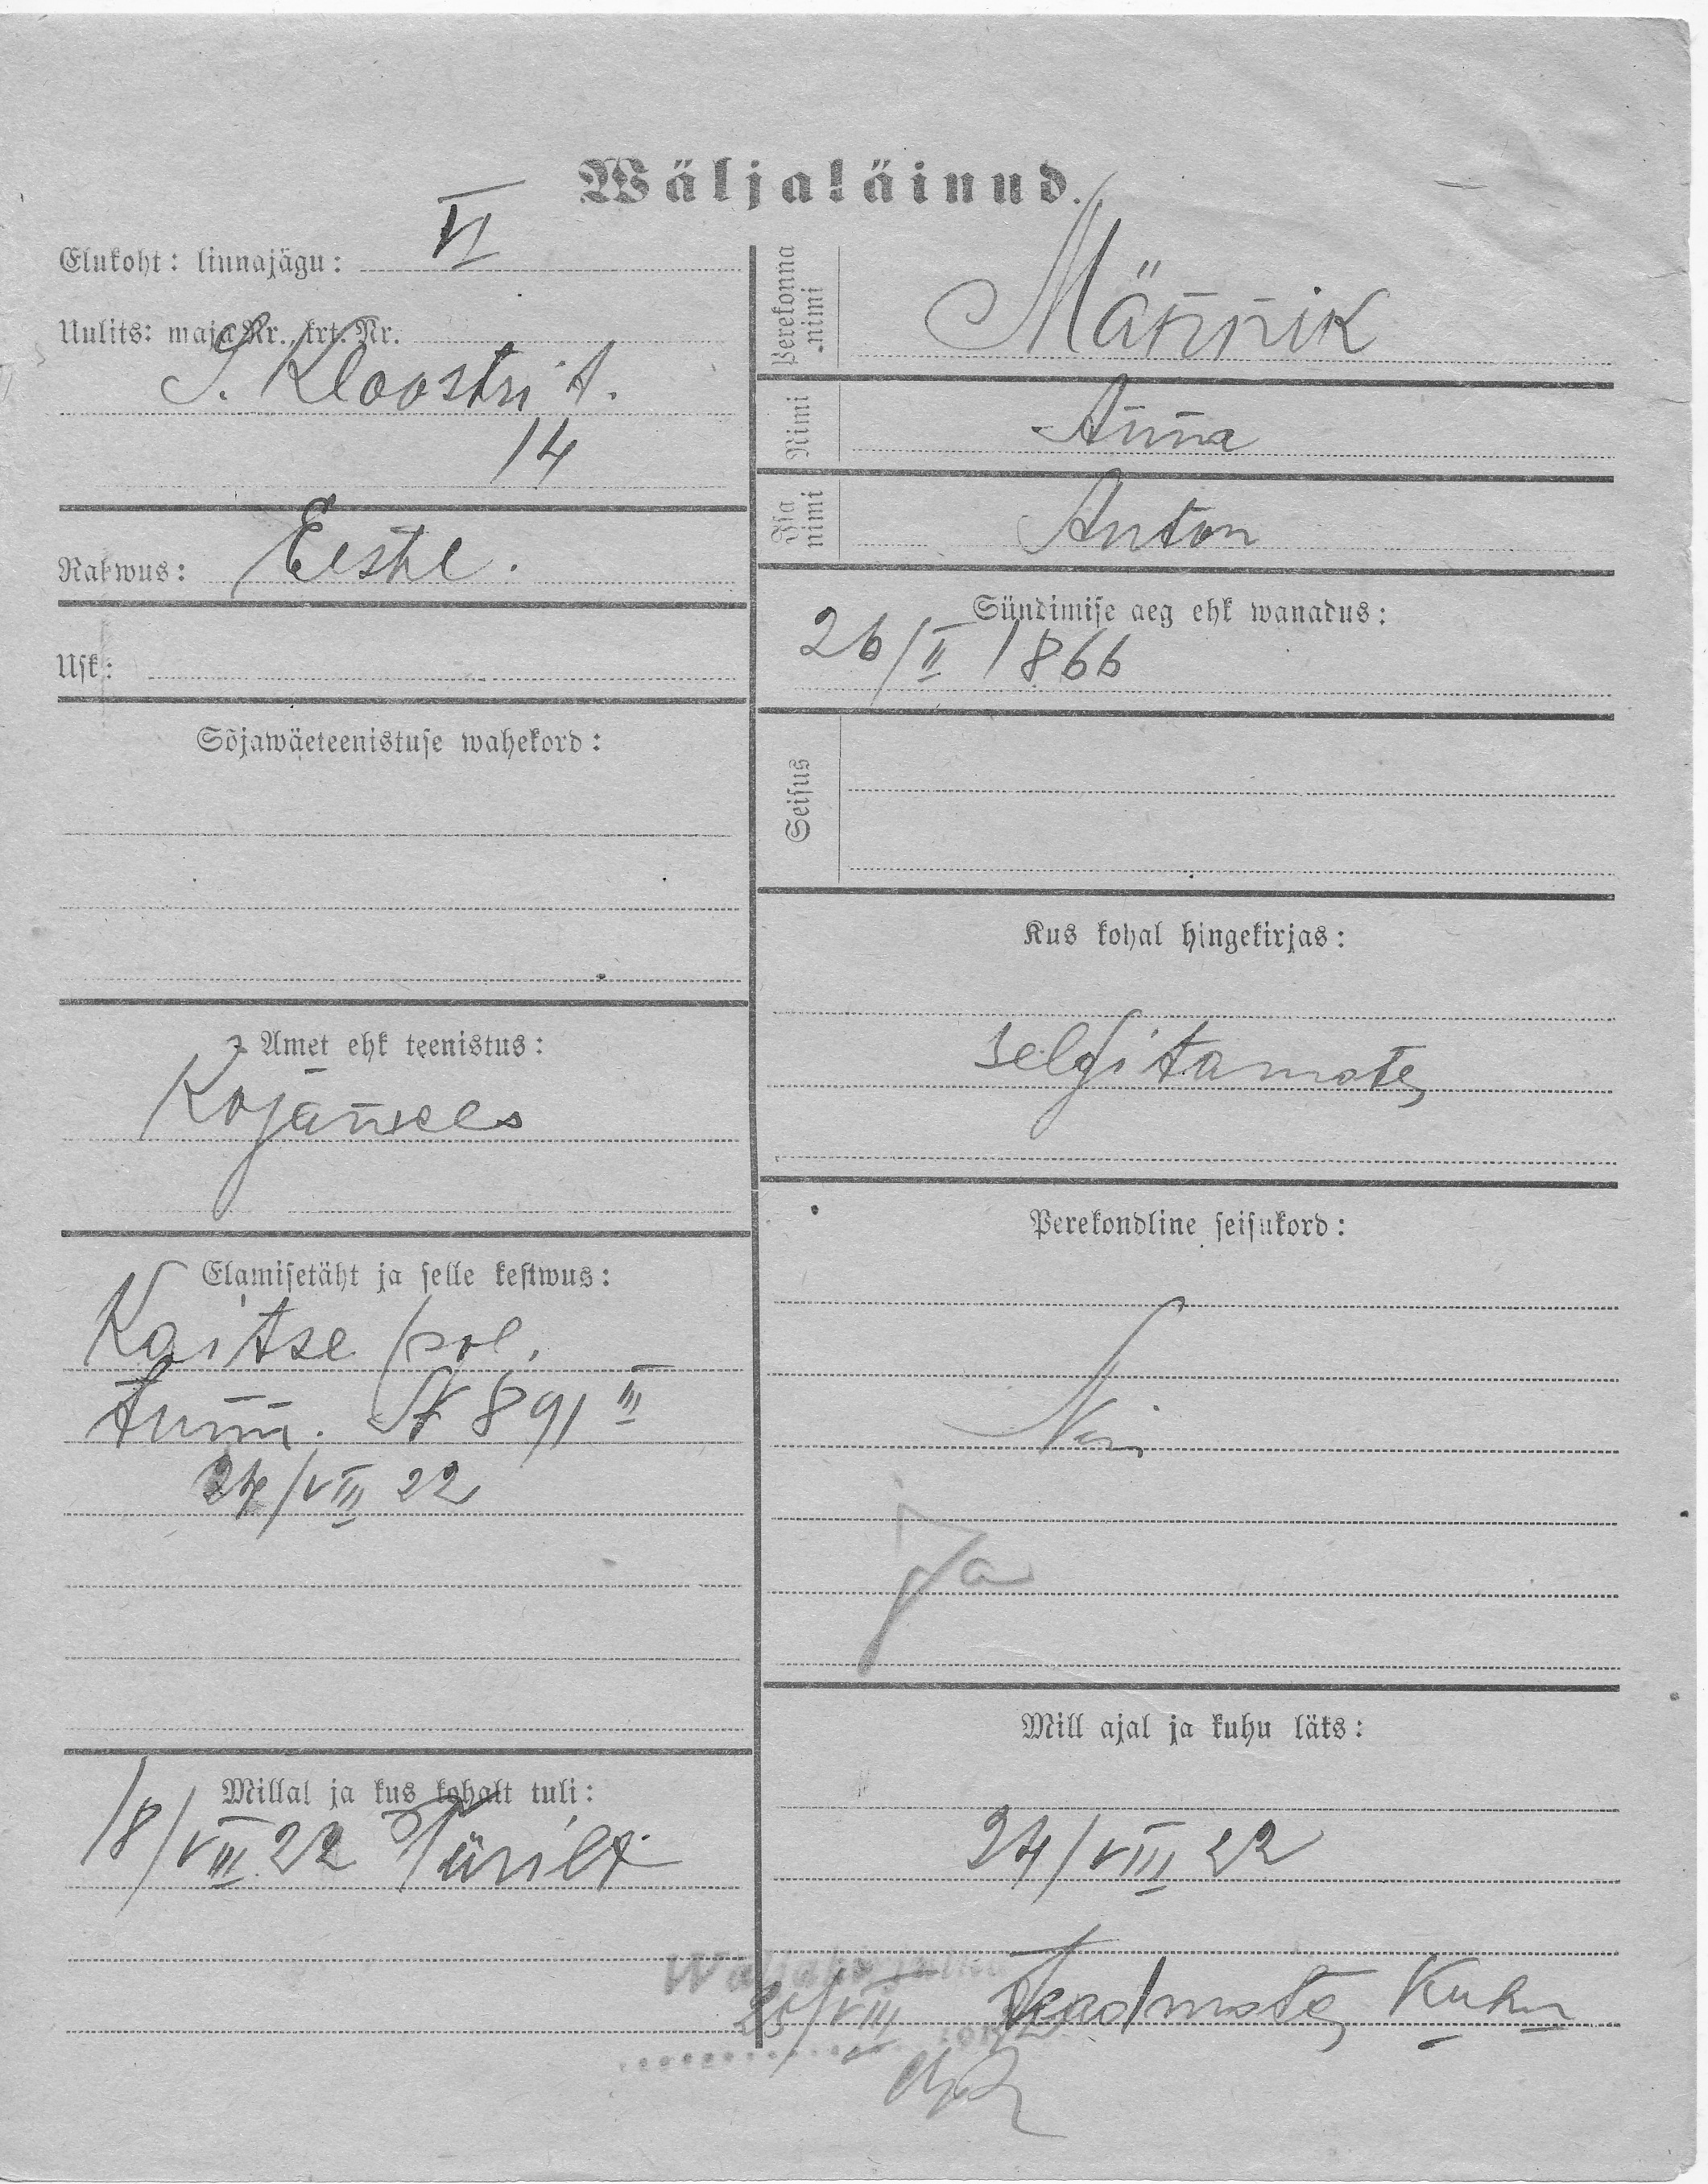 Wäljaläinud.
Elukoht: linnajagu: VI
Uulits: maja Nr., krt. Nr.
S. Kloostri t.
14
Rahwus: Eestl.
Usk:
Sõjawäeteenistuse wahekord:
Amet ehk teenistus:
Kojamees
Elamisetäht ja selle kestwus:
Kaitse pol.
tunn. № 891 III
24/VIII 22
Millal ja kus kohalt tuli:
18/VIII 22 Türilt
Perekonna nimi
Männik
Nimi
Anna
Isa nimi
Anton
Sündimise aeg ehk wanadus:
26/II 1866
Seisus
Kus kohal hingekirjas:
selgitamata
Perekondline seisukord:
Ja
Mill ajal ja kuhu läks:
24/VIII 22
Teadmata Kuhu
25/VIII